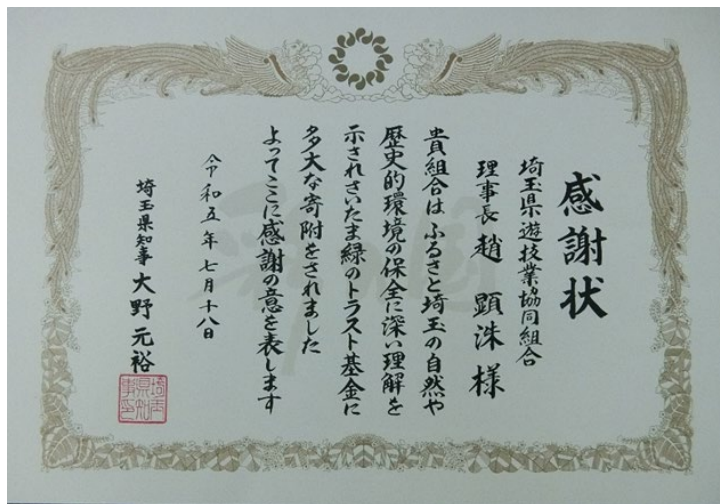 感謝状
埼玉県遊技業協同組合
理事長 趙 顕洙 様
貴組合はふるさと埼玉の自然や
歴史的環境の保全に深い理解を
示されさいたま緑のトラスト基金に
多大な寄附をされました
よってここに感謝の意を表します
令和五年七月十八日
埼玉県知事 大野元裕
埼玉県知事之印
彩の国